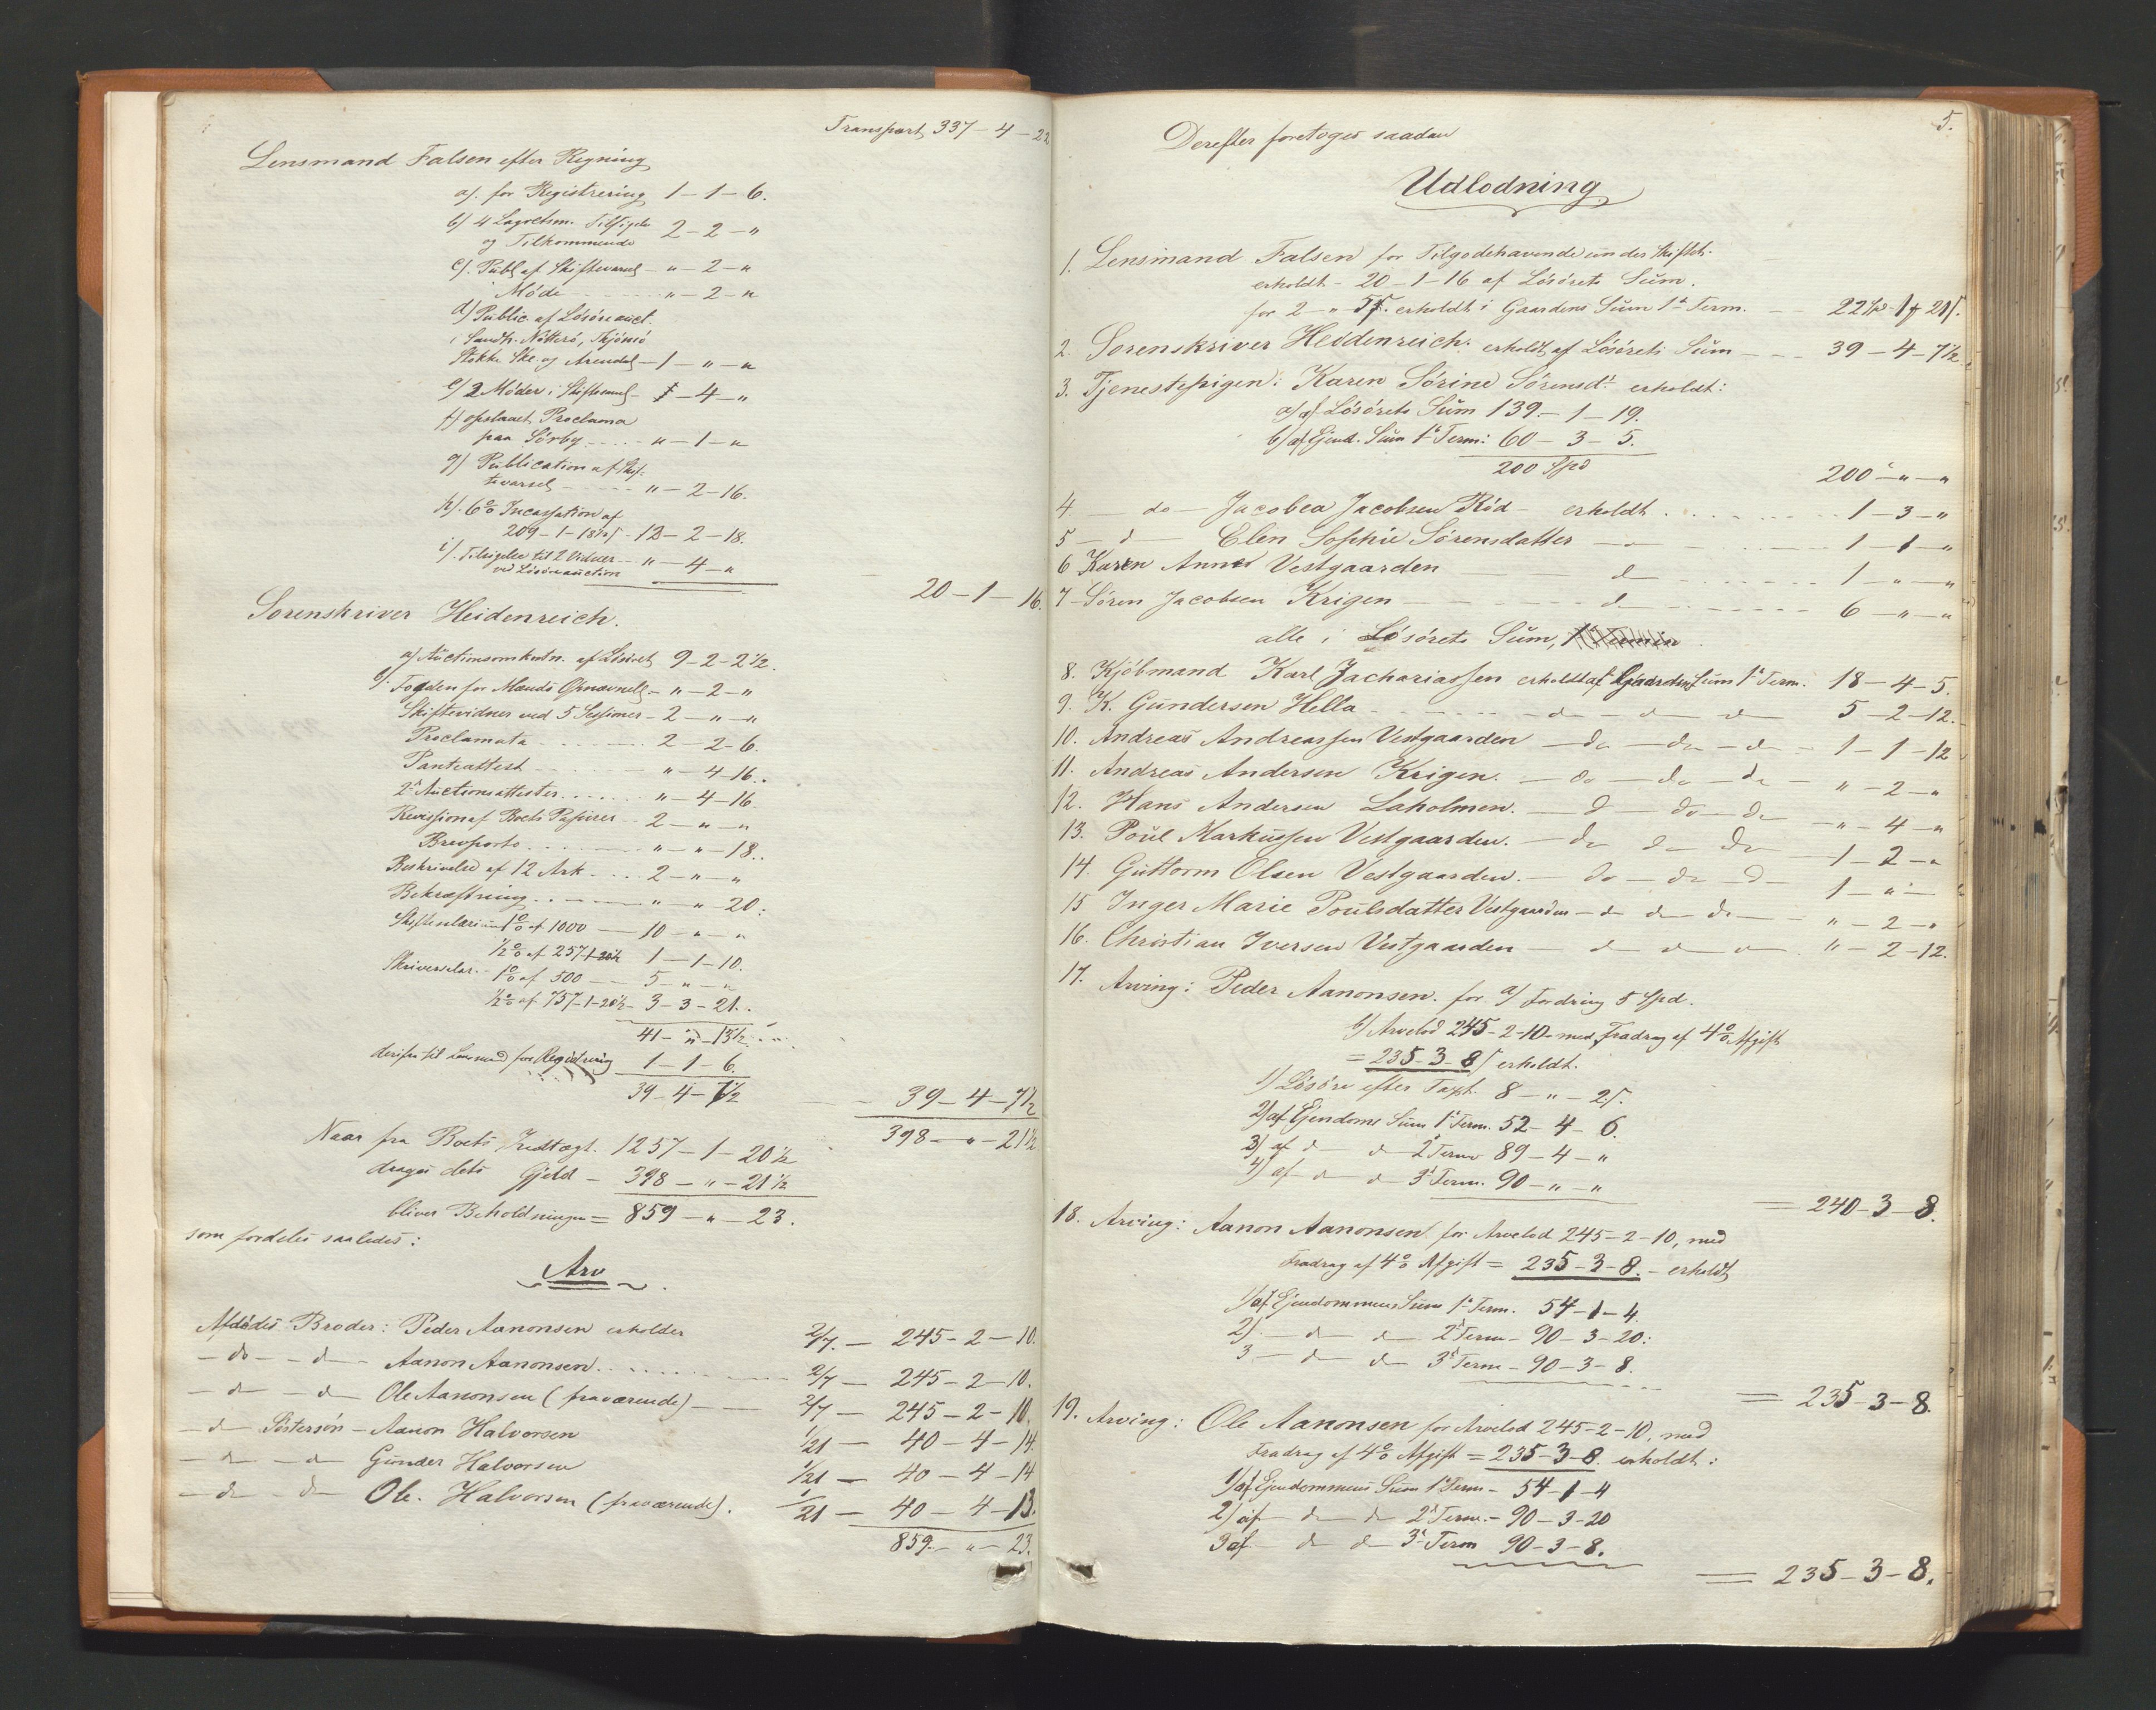 Transport 337 – 4 – 22
Lensmand Falsen efter Regning
a). for Registrering 1 – 1 – 6.
b) 4 Lagretsm. Tilsigelse
og Tilkommende 2 – 2 – "
c). Publ. af Skiftevarsel – " – 2 – "
Møde " – 2 – "
d) Public. af Løsøreauct.
i Sandh. Nøtterø, Tjømø
Stokke Ske. og Arendal – 1 – " – "
e) 2 Møder i Skiftesaml – – 4 – "
f) opslaaet Proclama
paa Sørby " – 1 – "
g) Publication af Skif-
tevarsel " – 2 – 16.
h). 6% Incassation af
209 – 1 – 18½ s – 12 – 2 – 18.
i). Tilsigelse til 2 Vidner – " – 4 – "
ved Løsøreauction
20 – 1 – 16.
Sorenskriver Heidenreich.
a) Auctionsomkostn. af Løsøret 9 – 2 – 2½.
b). Fogden for Mænds Opnævnelse – " – 2 – "
Skiftevidner ved 5 Sessioner – 2 – " – "
Proclamata 2 – 2 – 6.
Panteattest " – 4 – 16.
2 Auctionsattester " – 4 – 16.
Revission af Boets Papirer 2 – " – "
Brevporto " – " – 18.
Beskrivelse af 12 Ark 2 – " – "
Bekræftning " – " – 20.
Skiftesalarium 1% af 1000 – 10 – " – "
½% af 257–1–20½ 1 – 1 – 10.
Skriversalar. – 1% af 500 – 5 – " – "
½% af 757–1–20½ – 3 – 3 – 21.
41 – " – 13½
derifra til Lensmand for Registrering 1 – 1 – 6.
39 – 4 – 7½ 39 – 4 – 7½
398 – " – 21½
Naar fra Boets Indtægt. 1257 – 1 – 20½
drages dets Gjeld – 398 – " – 21½
bliver Beholdningen = 859 – " – 23.
som fordeles saaledes:
Arv
Afdødes Broder: Peder Aanonsen erholder 2/7. – 245 – 2 – 10.
– do – – d – Aanon Aanonsen 2/7 – 245 – 2 – 10.
– d – – d – Ole Aanonsen (fraværende) 2/7 – 245 – 2 – 10.
– d – Søstersøn – Aanon Halvorsen 1/21 – 40 – 4 – 14.
– d – – d – Gunder Halvorsen 1/21 – 40 – 4 – 14
– d – – d – Ole Halvorsen (fraværende). 1/21 – 40 – 4 – 13.
859 – " – 23.
5.
Derefter foretoges saadan
Udlodning
1. Lensmand Falsen for Tilgodehavende under Skiftet.
erholdt – 20 – 1 – 16 af Løsørets Sum.
for 2 – " – 5 s. erholdt i Gaardens Sum 1ste Term. 22 Spd – 1 – 21 s.
2. Sorenskriver Heidenreich. erholdt af Løsørets Sum 39 – 4 – 7½
3. Tjenestepigen: Karen Sørine Sørensd. erholdt:
a) af Løsørets Sum 139 – 1 – 19.
b) af Ejend. Sum 1ste Term: 60 – 3 – 5.
200 Spd 200 – " – "
4 – do – Jacobea Jacobsen Rød – erholdt 1 – 3 – "
5 – d – Elen Sophie Sørensdatter 1 – 1 – "
6 Karen Anne Vestgaarden – d – 1 – " – "
7 – Søren Jacobsen Krigen – d – 6 – " – "
alle i Løsørets Sum,
8. Kjøbmand Karl Zachariassen erholdt af Gaardens Sum 1ste Term. 18 – 4 – 5.
9. K. Gundersen Hella – d – d – d 5 – 2 – 12.
10. Andreas Andreassen Vestgaarden – do – do – d – 1 – 1 – 12
11. Andreas Andersen Krigen. – do – do – do – " – 2 – "
12. Hans Andersen Laholmen. – d – do – do – " – 4 – "
13. Poul Markussen Vestgaarden. – do d – do 1 – 2 – "
14. Guttorm Olsen Vestgaarden. – do – do – d – 1 – " –
15 Inger Marie Poulsdatter Vestgaarden – d – d – d – " – 2 – "
16. Christian Iversen Vestgaarden – d – d – d " – 2 – 12.
17. Arving: Peder Aanonsen. for a) Fordring 5 Spd.
b) Arvelod 245 – 2 – 10 – med Fradrag af 4% Afgift
= 235 – 3 – 8 s erholdt.
1) Løsøre efter Taxt. 8 – " – 2 s.
2) af Ejendoms Sum 1ste Term. 52 – 4 – 6.
3) af d – d – 2 Term 89 – 4 – "
4) af – d – d – 3 Term. 90 – " – "
= 240 – 3 – 8.
18. Arving: Aanon Aanonsen for Arvelod 245 – 2 – 10, med
Fradrag af 4% Afgift = 235 – 3 – 8. – erholdt
1) af Ejendommens Sum 1ste Term. 54 – 1 – 4.
2) – d – d – 2 Term – 90 – 3 – 20.
3 – d – d – 3 Term – 90 – 3 – 8.
= 235 – 3 – 8.
19. Arving: Ole Aanonsen for Arvelod 245 – 2 – 10, med
Fradrag af 4% Afgift = 235 – 3 – 8. erholdt:
1) af Ejendommens Sum 1 Term – 54 – 1 – 4
2) af – d – d – 2 Term. – 90 – 3 – 20
3 af – d – d – 3 Term 90 – 3 – 8.
= 235 – 3 – 8.